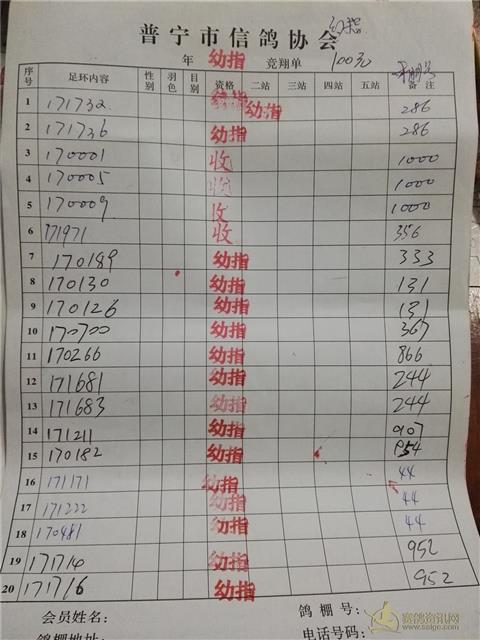 普宁市信鸽协会
年 幼指 竞翔单 100元
序号 足环内容 性别 羽色 目别 资格 二站 三站 四站 五站 备注
1 171732 幼指 286
2 171736 幼指 286
3 170001 收 1000
4 170005 收 1000
5 170009 收 1000
6 171971 收 356
7 170189 幼指 333
8 170130 幼指 131
9 170126 幼指 131
10 170700 幼指 367
11 170266 幼指 866
12 171681 幼指 244
13 171683 幼指 244
14 171211 幼指 907
15 170182 幼指 954
16 171171 幼指 44
17 171222 幼指 44
18 170481 幼指 44
19 171714 幼指 952
20 171716 幼指 952
会员姓名: 鸽棚号:
会员地址: 电话号码:
赛鸽资讯网
www.saige.com